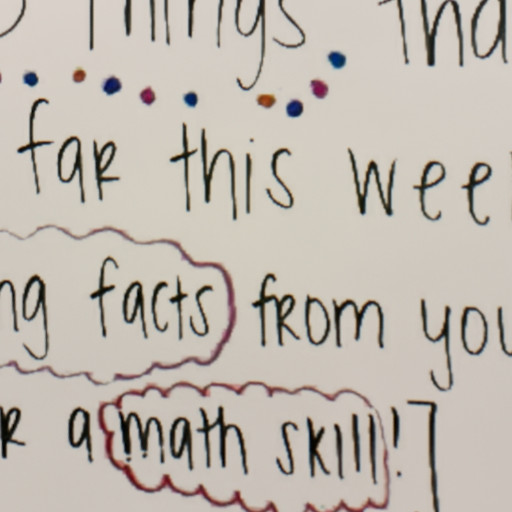 things tha
far this wee
ng facts from you
R a math skill!]